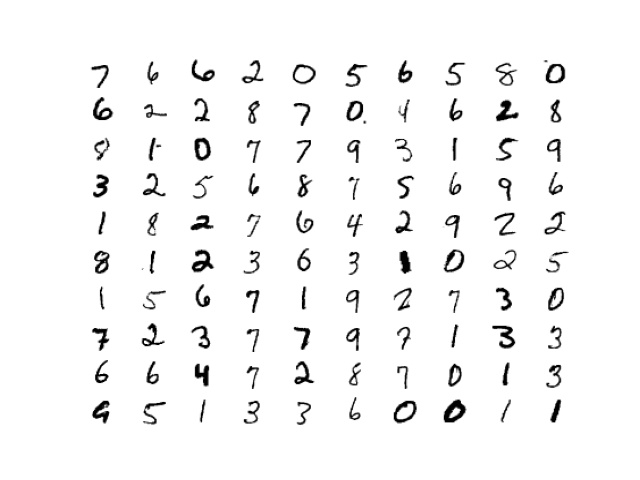 7 6 6 2 0 5 6 5 8 0
6 2 2 8 7 0. 4 6 2 8
8 1 0 7 7 9 3 1 5 9
3 2 5 6 8 7 5 6 9 6
1 8 2 7 6 4 2 9 2 2
8 1 2 3 6 3 1 0 2 5
1 5 6 7 1 9 2 7 3 0
7 2 3 7 7 9 7 1 3 3
6 6 4 7 2 8 7 0 1 3
9 5 1 3 3 6 0 0 1 1